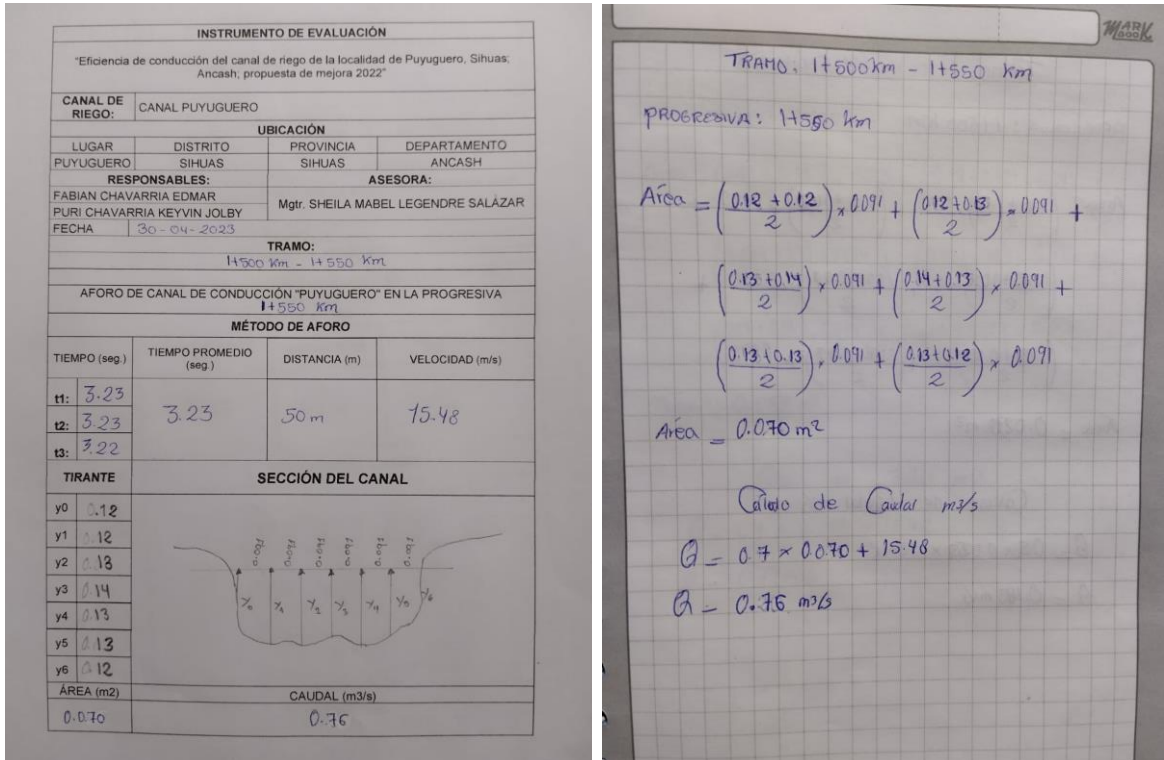 INSTRUMENTO DE EVALUACIÓN
"Eficiencia de conducción del canal de riego de la localidad de Puyuguero, Sihuas;
Ancash; propuesta de mejora 2022"
CANAL DE RIEGO: CANAL PUYUGUERO
UBICACIÓN
LUGAR DISTRITO PROVINCIA DEPARTAMENTO
PUYUGUERO SIHUAS SIHUAS ANCASH
RESPONSABLES: ASESORA:
FABIAN CHAVARRIA EDMAR
PURI CHAVARRIA KEYVIN JOLBY
Mgtr. SHEILA MABEL LEGENDRE SALAZAR
FECHA 30-04-2023
TRAMO:
1+500 Km - 1+550 Km
AFORO DE CANAL DE CONDUCCIÓN "PUYUGUERO" EN LA PROGRESIVA
1+550 Km
MÉTODO DE AFORO
TIEMPO (seg.) TIEMPO PROMEDIO (seg.) DISTANCIA (m) VELOCIDAD (m/s)
t1: 3.23
t2: 3.23 3.23 50 m 15.48
t3: 3.22
TIRANTE SECCIÓN DEL CANAL
y0 0.12
y1 0.12
y2 0.13
y3 0.14
y4 0.13
y5 0.13
y6 0.12
0.091 0.091 0.091 0.091 0.091 0.091
Y0 Y1 Y2 Y3 Y4 Y5 Y6
ÁREA (m2) CAUDAL (m3/s)
0.070 0.76
MARK BOOK
TRAMO. 1+500 Km - 1+550 Km
PROGRESIVA: 1+550 Km
Área = (0.12 + 0.12 / 2) x 0.091 + (0.12 + 0.13 / 2) x 0.091 +
(0.13 + 0.14 / 2) x 0.091 + (0.14 + 0.13 / 2) x 0.091 +
(0.13 + 0.13 / 2) x 0.091 + (0.13 + 0.12 / 2) x 0.091
Área = 0.070 m2
Cálculo de Caudal m3/s
Q = 0.7 x 0.070 + 15.48
Q = 0.76 m3/s